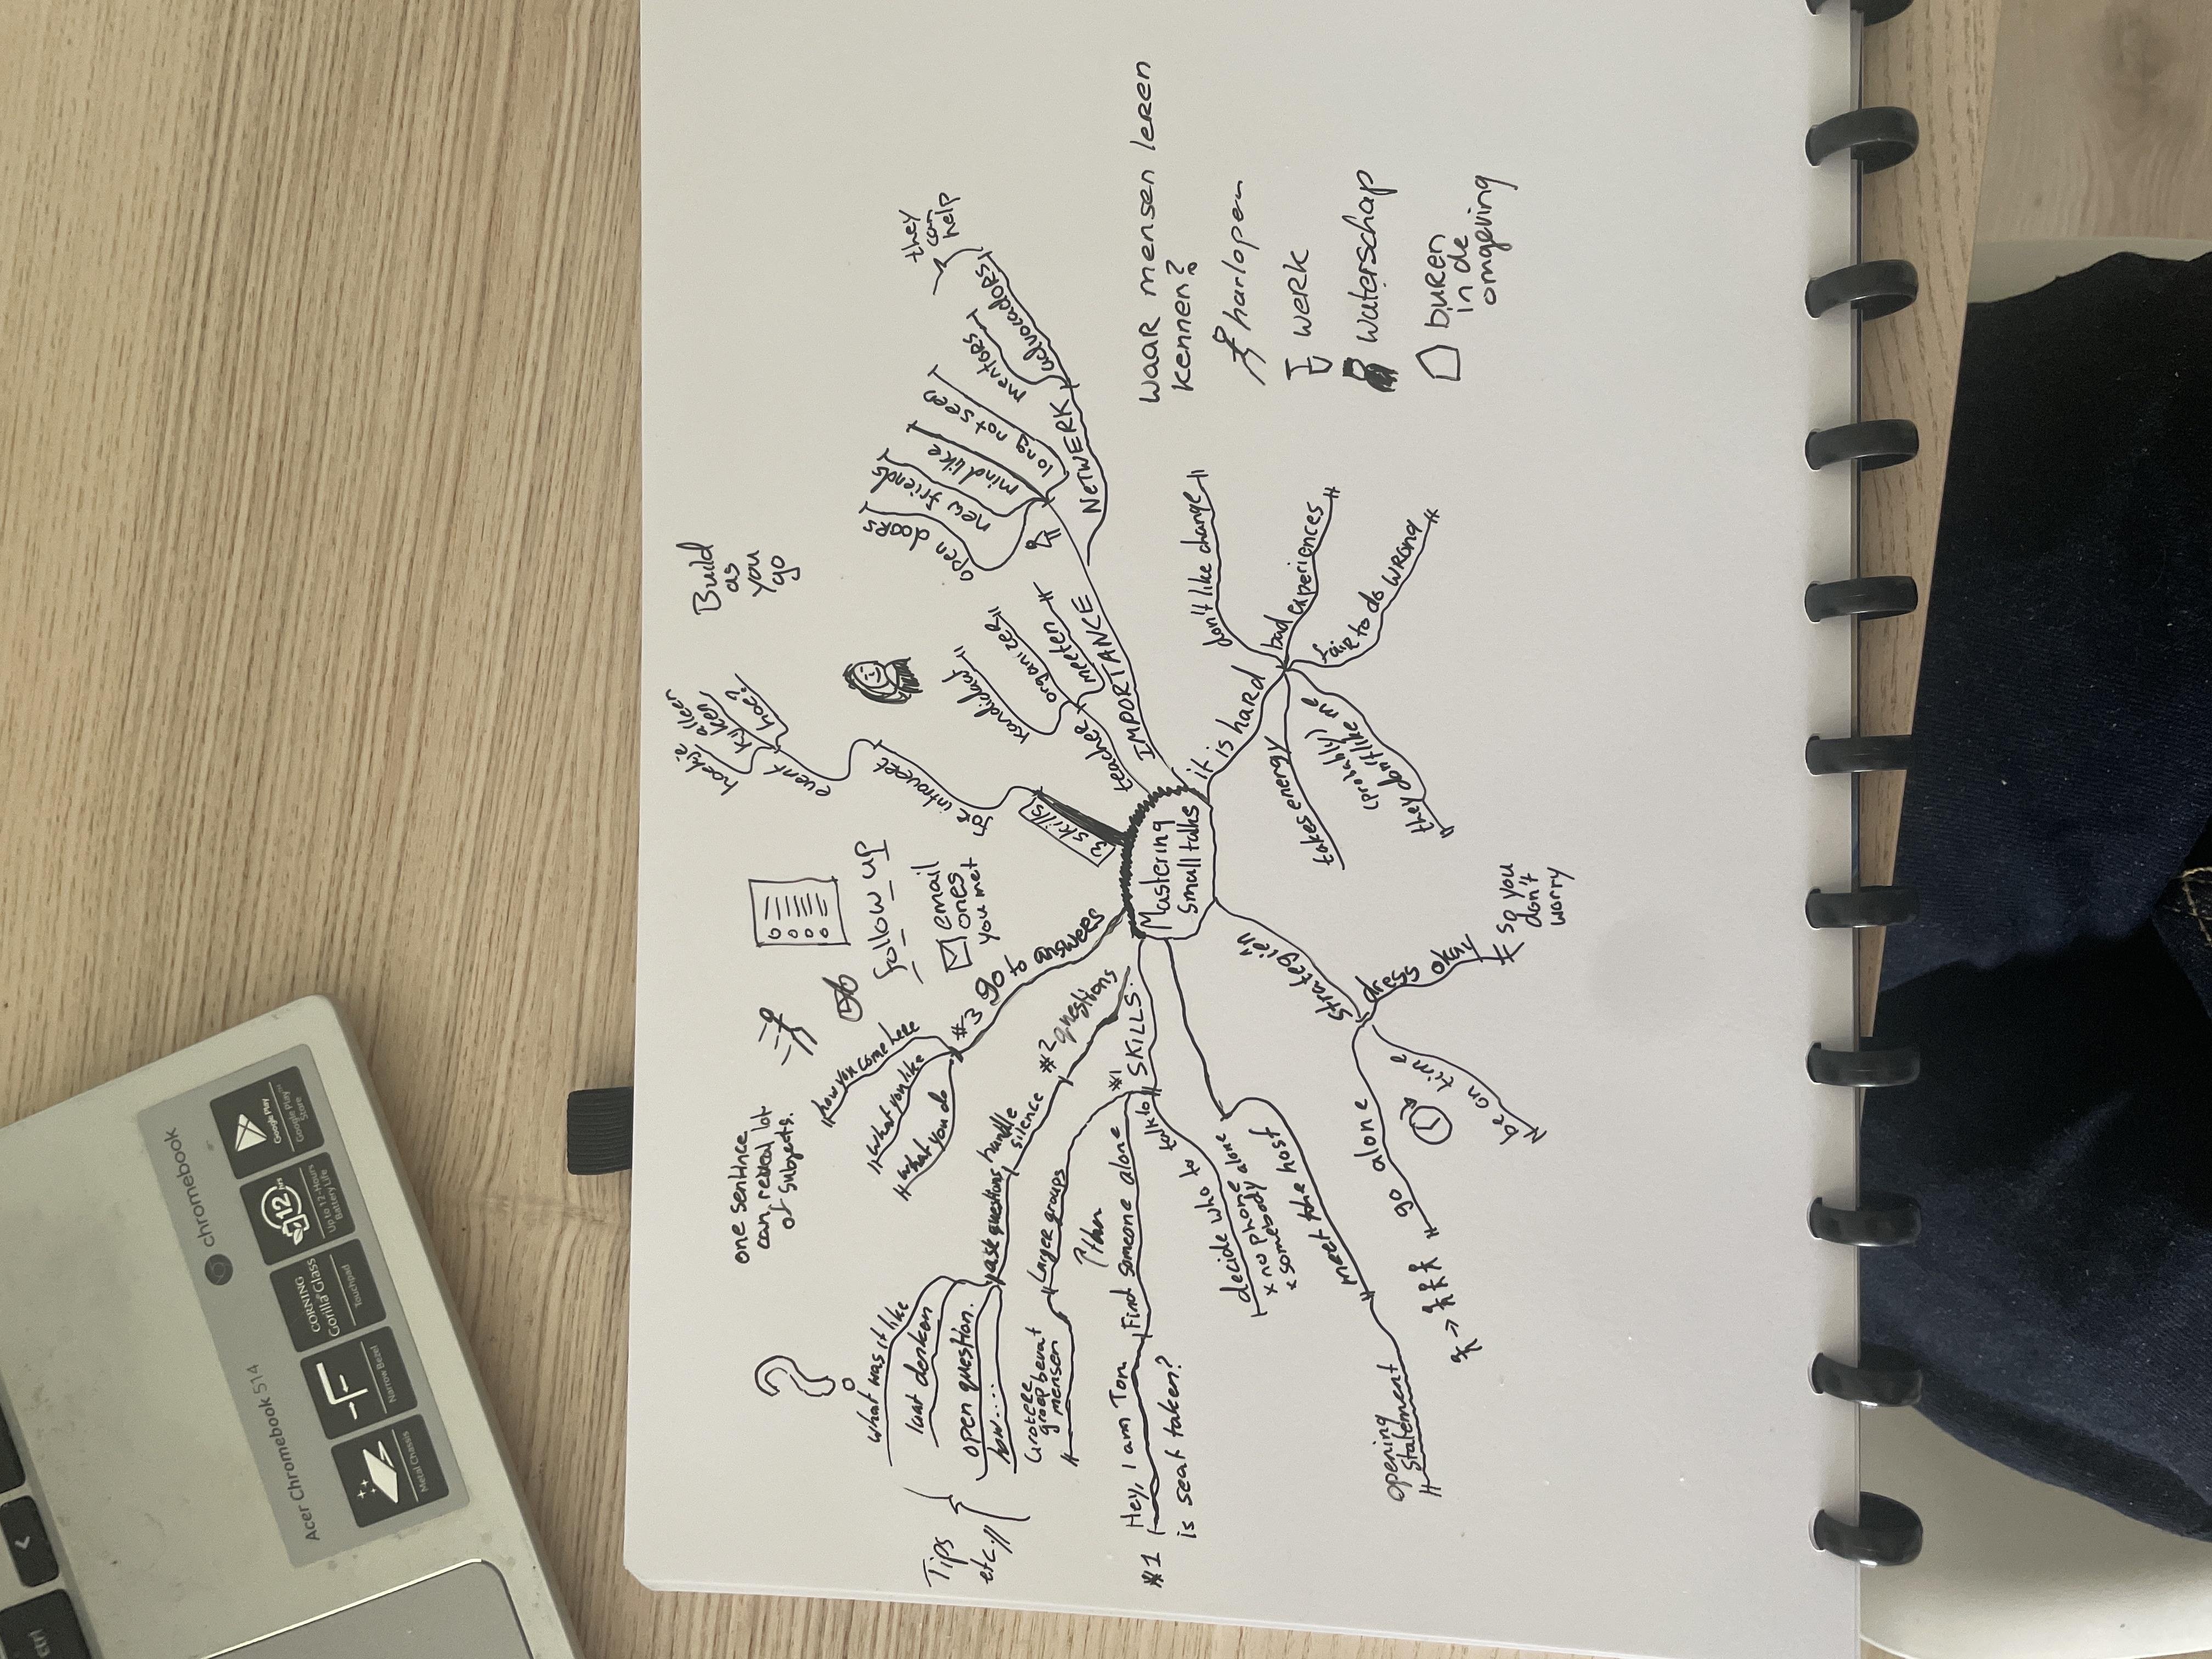 Mastering
small talks
IMPORTANCE
NETWERK
advocadors
mentors
they
can
help
long not seen
mind like
new friends
open doors
teacher
kandidaat
organizer
meeten
skills
for introvert
event
hoekje
alleen
kyken
hoe?
Build
as
you
go
it is hard
don't like change
bad experiences
fair to do wrong
(probably)
they don't like me
takes energy
strategieën
dress okay
so you
don't
worry
be on time
go alone
meet the host
opening
statement
SKILLS.
#1
talk to
decide who to
x no phone alone
x somebody
Find someone alone
then
Larger groups
Grotere
groep bevat
mensen
#1 Hey, I am Tom
is seat taken?
#2 questions
handle
silence
ask questions
what was it like
laat denken
open question.
how.....
Tips
etc.
#3 go to answers
how you come here
what you like
what you do
one sentence
can reveal lot
of subjects.
follow up
email
ones
you met
WAAR mensen leren
kennen?
harlopen
werk
waterschap
buren
in de
omgeving
chromebook
Acer Chromebook 514
Google Play
Google Play
Store
12
hrs
Up to 12-Hours
Battery Life
CORNING
Gorilla Glass
Touchpad
Narrow Bezel
Metal Chassis
ctrl